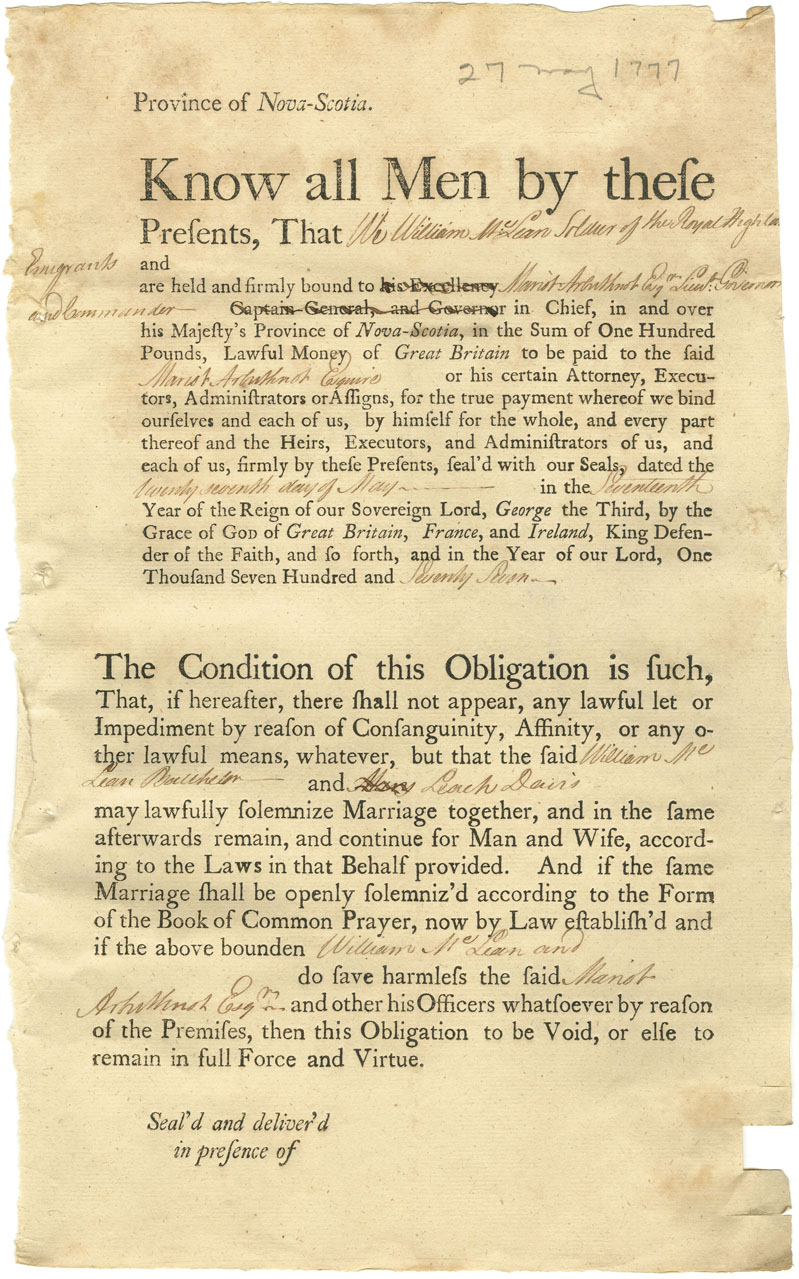 27 may 1777
Province of Nova-Scotia.
Know all Men by theſe
Preſents, That We William McLean Soldier of the Royal Highla
Emigrants and
are held and firmly bound to his Excellency Mariot Arbuthnot Esqr. Lieut. Governor
and Commander Captain General, and Governor in Chief, in and over
his Majeſty's Province of Nova-Scotia, in the Sum of One Hundred
Pounds, Lawful Money of Great Britain to be paid to the ſaid
Mariot Arbuthnot Esquire or his certain Attorney, Execu-
tors, Adminiſtrators or Aſſigns, for the true payment whereof we bind
ourſelves and each of us, by himſelf for the whole, and every part
thereof and the Heirs, Executors, and Adminiſtrators of us, and
each of us, firmly by theſe Preſents, ſeal'd with our Seals, dated the
twenty seventh day of May in the Seventeenth
Year of the Reign of our Sovereign Lord, George the Third, by the
Grace of God of Great Britain, France, and Ireland, King Defen-
der of the Faith, and ſo forth, and in the Year of our Lord, One
Thouſand Seven Hundred and Seventy Seven
The Condition of this Obligation is ſuch,
That, if hereafter, there ſhall not appear, any lawful let or
Impediment by reaſon of Conſanguinity, Affinity, or any o-
ther lawful means, whatever, but that the ſaid William Mc
Lean Batchelor and Leach Davis
may lawfully ſolemnize Marriage together, and in the ſame
afterwards remain, and continue for Man and Wife, accord-
ing to the Laws in that Behalf provided. And if the ſame
Marriage ſhall be openly ſolemniz'd according to the Form
of the Book of Common Prayer, now by Law eſtabliſh'd and
if the above bounden William McLean and
do ſave harmleſs the ſaid Mariot
Arbuthnot Esqr. and other his Officers whatſoever by reaſon
of the Premiſes, then this Obligation to be Void, or elſe to
remain in full Force and Virtue.
Seal'd and deliver'd
in preſence of